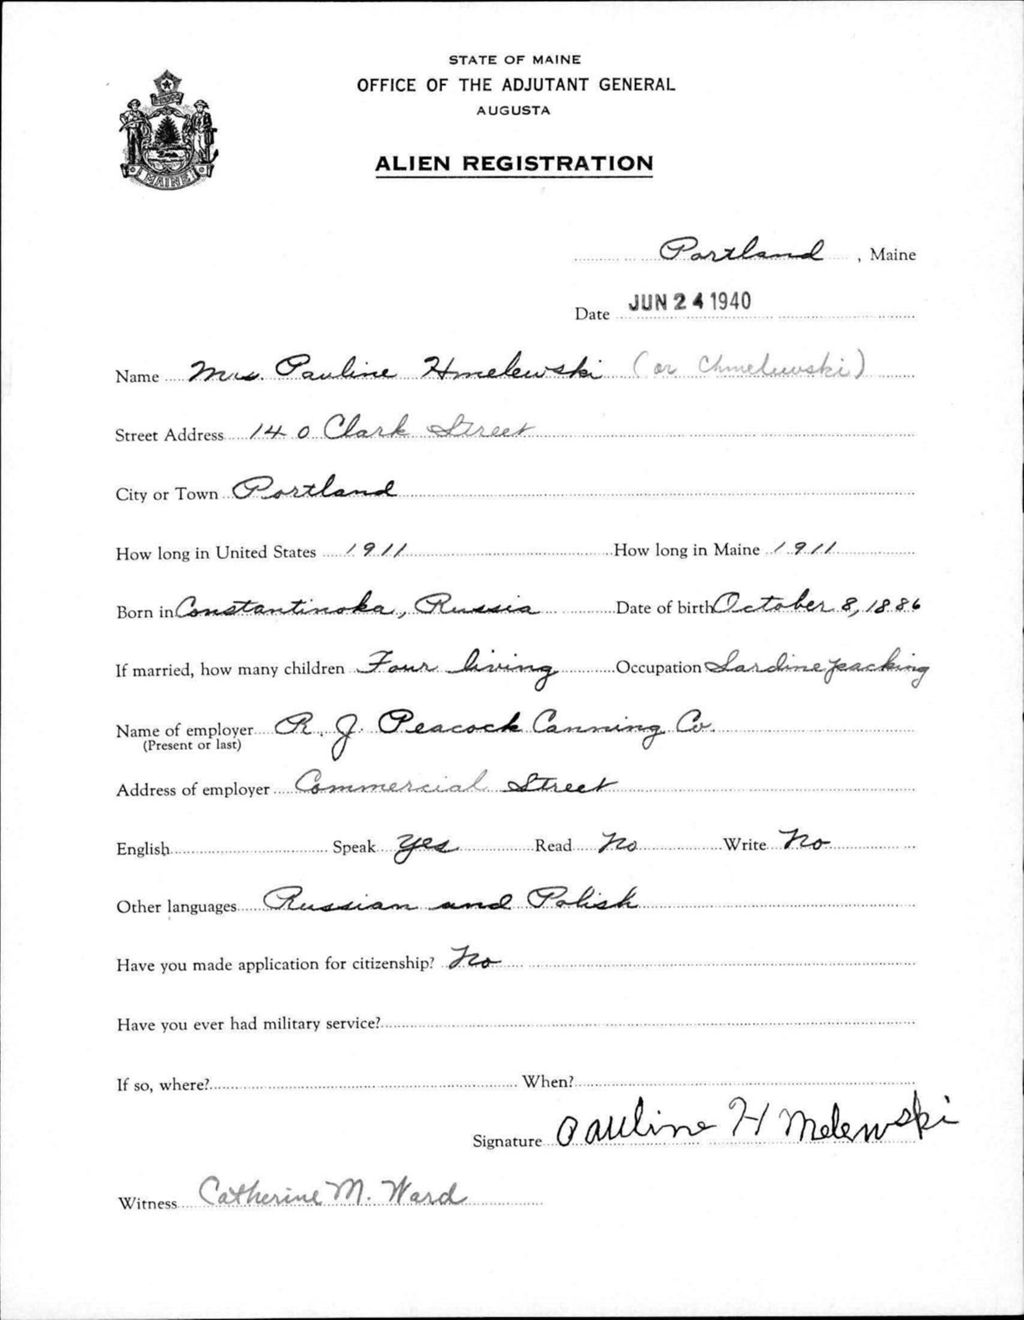 STATE OF MAINE
OFFICE OF THE ADJUTANT GENERAL
AUGUSTA
ALIEN REGISTRATION
MAINE
Portland, Maine
Date JUN 24 1940
Name Mrs. Pauline Hmelewski (or Chmelewski)
Street Address 140 Clark Street
City or Town Portland
How long in United States 1911 How long in Maine 1911
Born in Constantinoka, Russia Date of birth October 8, 1886
If married, how many children Four living Occupation Sardine packing
Name of employer R. J. Peacock Canning Co.
(Present or last)
Address of employer Commercial Street
English Speak Yes Read No Write No
Other languages Russian and Polish
Have you made application for citizenship? No
Have you ever had military service?
If so, where? When?
Signature Pauline Hmelewski
Witness Catherine M. Ward